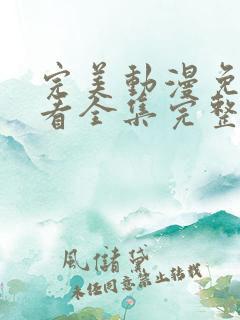 完美動漫免
看全集完整
風儲黛
未经同意禁止转载